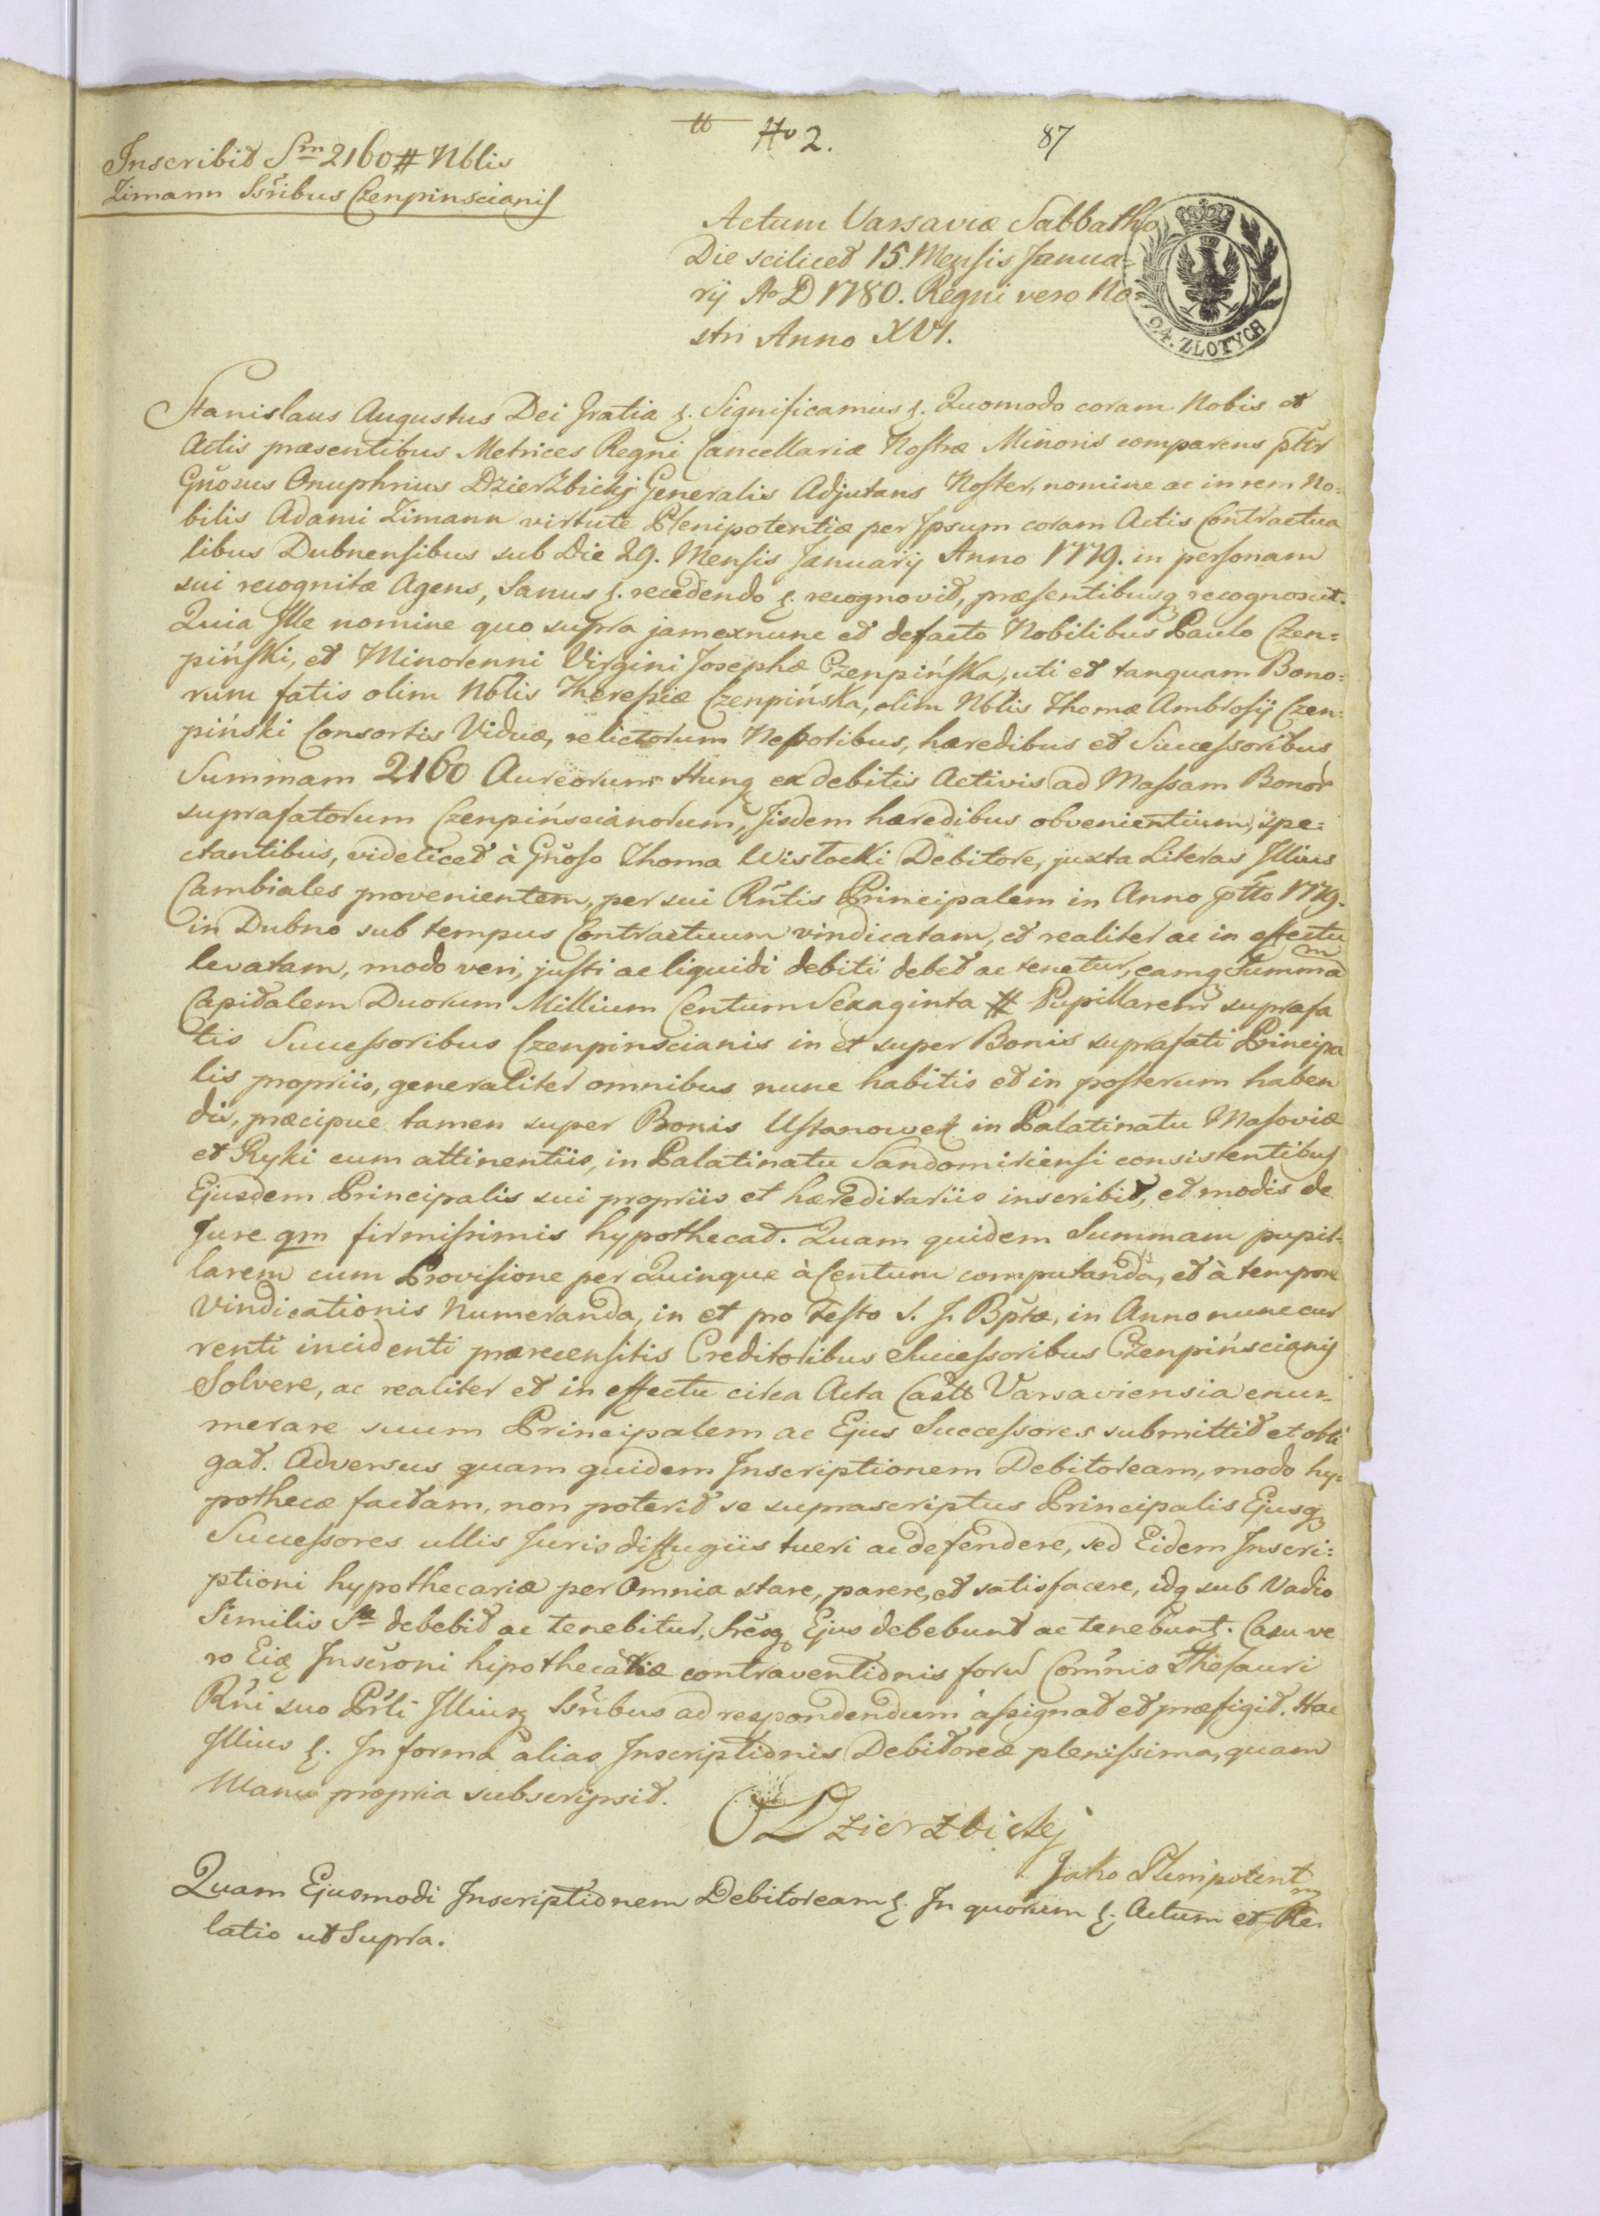 No 2.
87
Inscribit Sm 2160 # Nblis
Zimann Ssribus Czenpinscianis
Actum Varsaviæ Sabbatho
Die scilicet 15. Mensis Janua-
rij Ao D 1780. Regni vero No-
stri Anno XVI.
ZŁOTYCH
Stanislaus Augustus Dei Gratia &. Significamus &. Quomodo coram Nobis et
Actis præsentibus Metrices Regni Cancellariæ Nostræ Minoris comparens pltr
Gnŏsus Onuphrius Dzierzbickij Generalis Adjutans Noster, nomine ac in rem No=
bilis Adami Zimann virtute Plenipotentiæ per Ipsum coram Actis Contractua
libus Dubnensibus sub Die 29. Mensis Januarij Anno 1779. in personam
sui recognitæ Agens, Sanus &. recedendo &. recognovit, præsentibusq recognoscit.
Quia Ille nomine quo supra jamexnunc et defacto Nobilibus Paulo Czen=
piński, et Minorenni Virgini Josephæ Czenpińska, uti et tanquam Bono=
rum fatis olim Nblis Theresiæ Czenpińska, olim Nblis Thomæ Ambrosij Czen=
piński Consortis Viduæ, relictorum Nepotibus, hæredibus et Successoribus
Summam 2160 Aureorum Hung ex debitis Activis ad Massam Bonor
suprafatorum Czenpińscianorum, Iisdem hæredibus obvenientium, spe=
ctantibus, videlicet à Gnŏso Thoma Wisłocki Debitore, juxta Literas Illius
Cambiales provenientem, per sui Rntis Principalem in Anno ptto 1779.
in Dubno sub tempus Contractuum vindicatam, et realiter ac in effectu
levatam, modo veri, justi ac liquidi debiti debet ac tenetur, eamq Summam
Capitalem Duorum Millium Centum Sexaginta # Pupillarem suprafa
tis Successoribus Czenpinscianis in et super Bonis suprafati Principa
lis propriis, generaliter omnibus nunc habitis et in posterum haben
dis, præcipue tamen super Bonis Ustanowek in Palatinatu Masoviæ
et Ryki cum attinentiis, in Palatinatu Sandomiriensi consistentibus
Ejusdem Principalis sui propriis et hæreditariis inscribit, et modis de
Jure qm firmissimis hypothecat. Quam quidem Summam pupil=
larem cum Provisione per Quinque à Centum computanda, et à tempore
Vindicationis Numeranda, in et pro Festo S. J. Bptæ, in Anno nunc cur
renti incidenti præcensitis Creditoribus Successoribus Czenpińscianis
Solvere, ac realiter et in effectu circa Acta Castt Varsaviensia enu=
merare suum Principalem ac Ejus Successores submittit et obli
gat. Adversus quam quidem Inscriptionem Debitoream, modo hy=
pothecæ factam, non poterit se suprascriptus Principalis Ejusq
Successores ullis Juris diffugiis tueri ac defendere, sed Eidem Inscri=
ptioni hypothecariæ per Omnia stare, parere, et satisfacere, idq sub Vadio
Similis Sæ debebit ac tenebitur, Ssresq Ejus debebunt ac tenebunt. Casu ve
ro Eiq Inscroni hipothecariæ contraventionis forū Comnis Thesauri
Rni suo Prli Illiusq Ssribus ad respondendum assignat et præfigit. Hac
Illius &. In forma alias Inscriptionis Debitoreæ plenissima, quam
Manu propria subscripsit.
O Dzierzbickij
Jako Plenipotent
Quam Ejusmodi Inscriptionem Debitoream &. In quorum &. Actum et Re=
latio ut Supra.